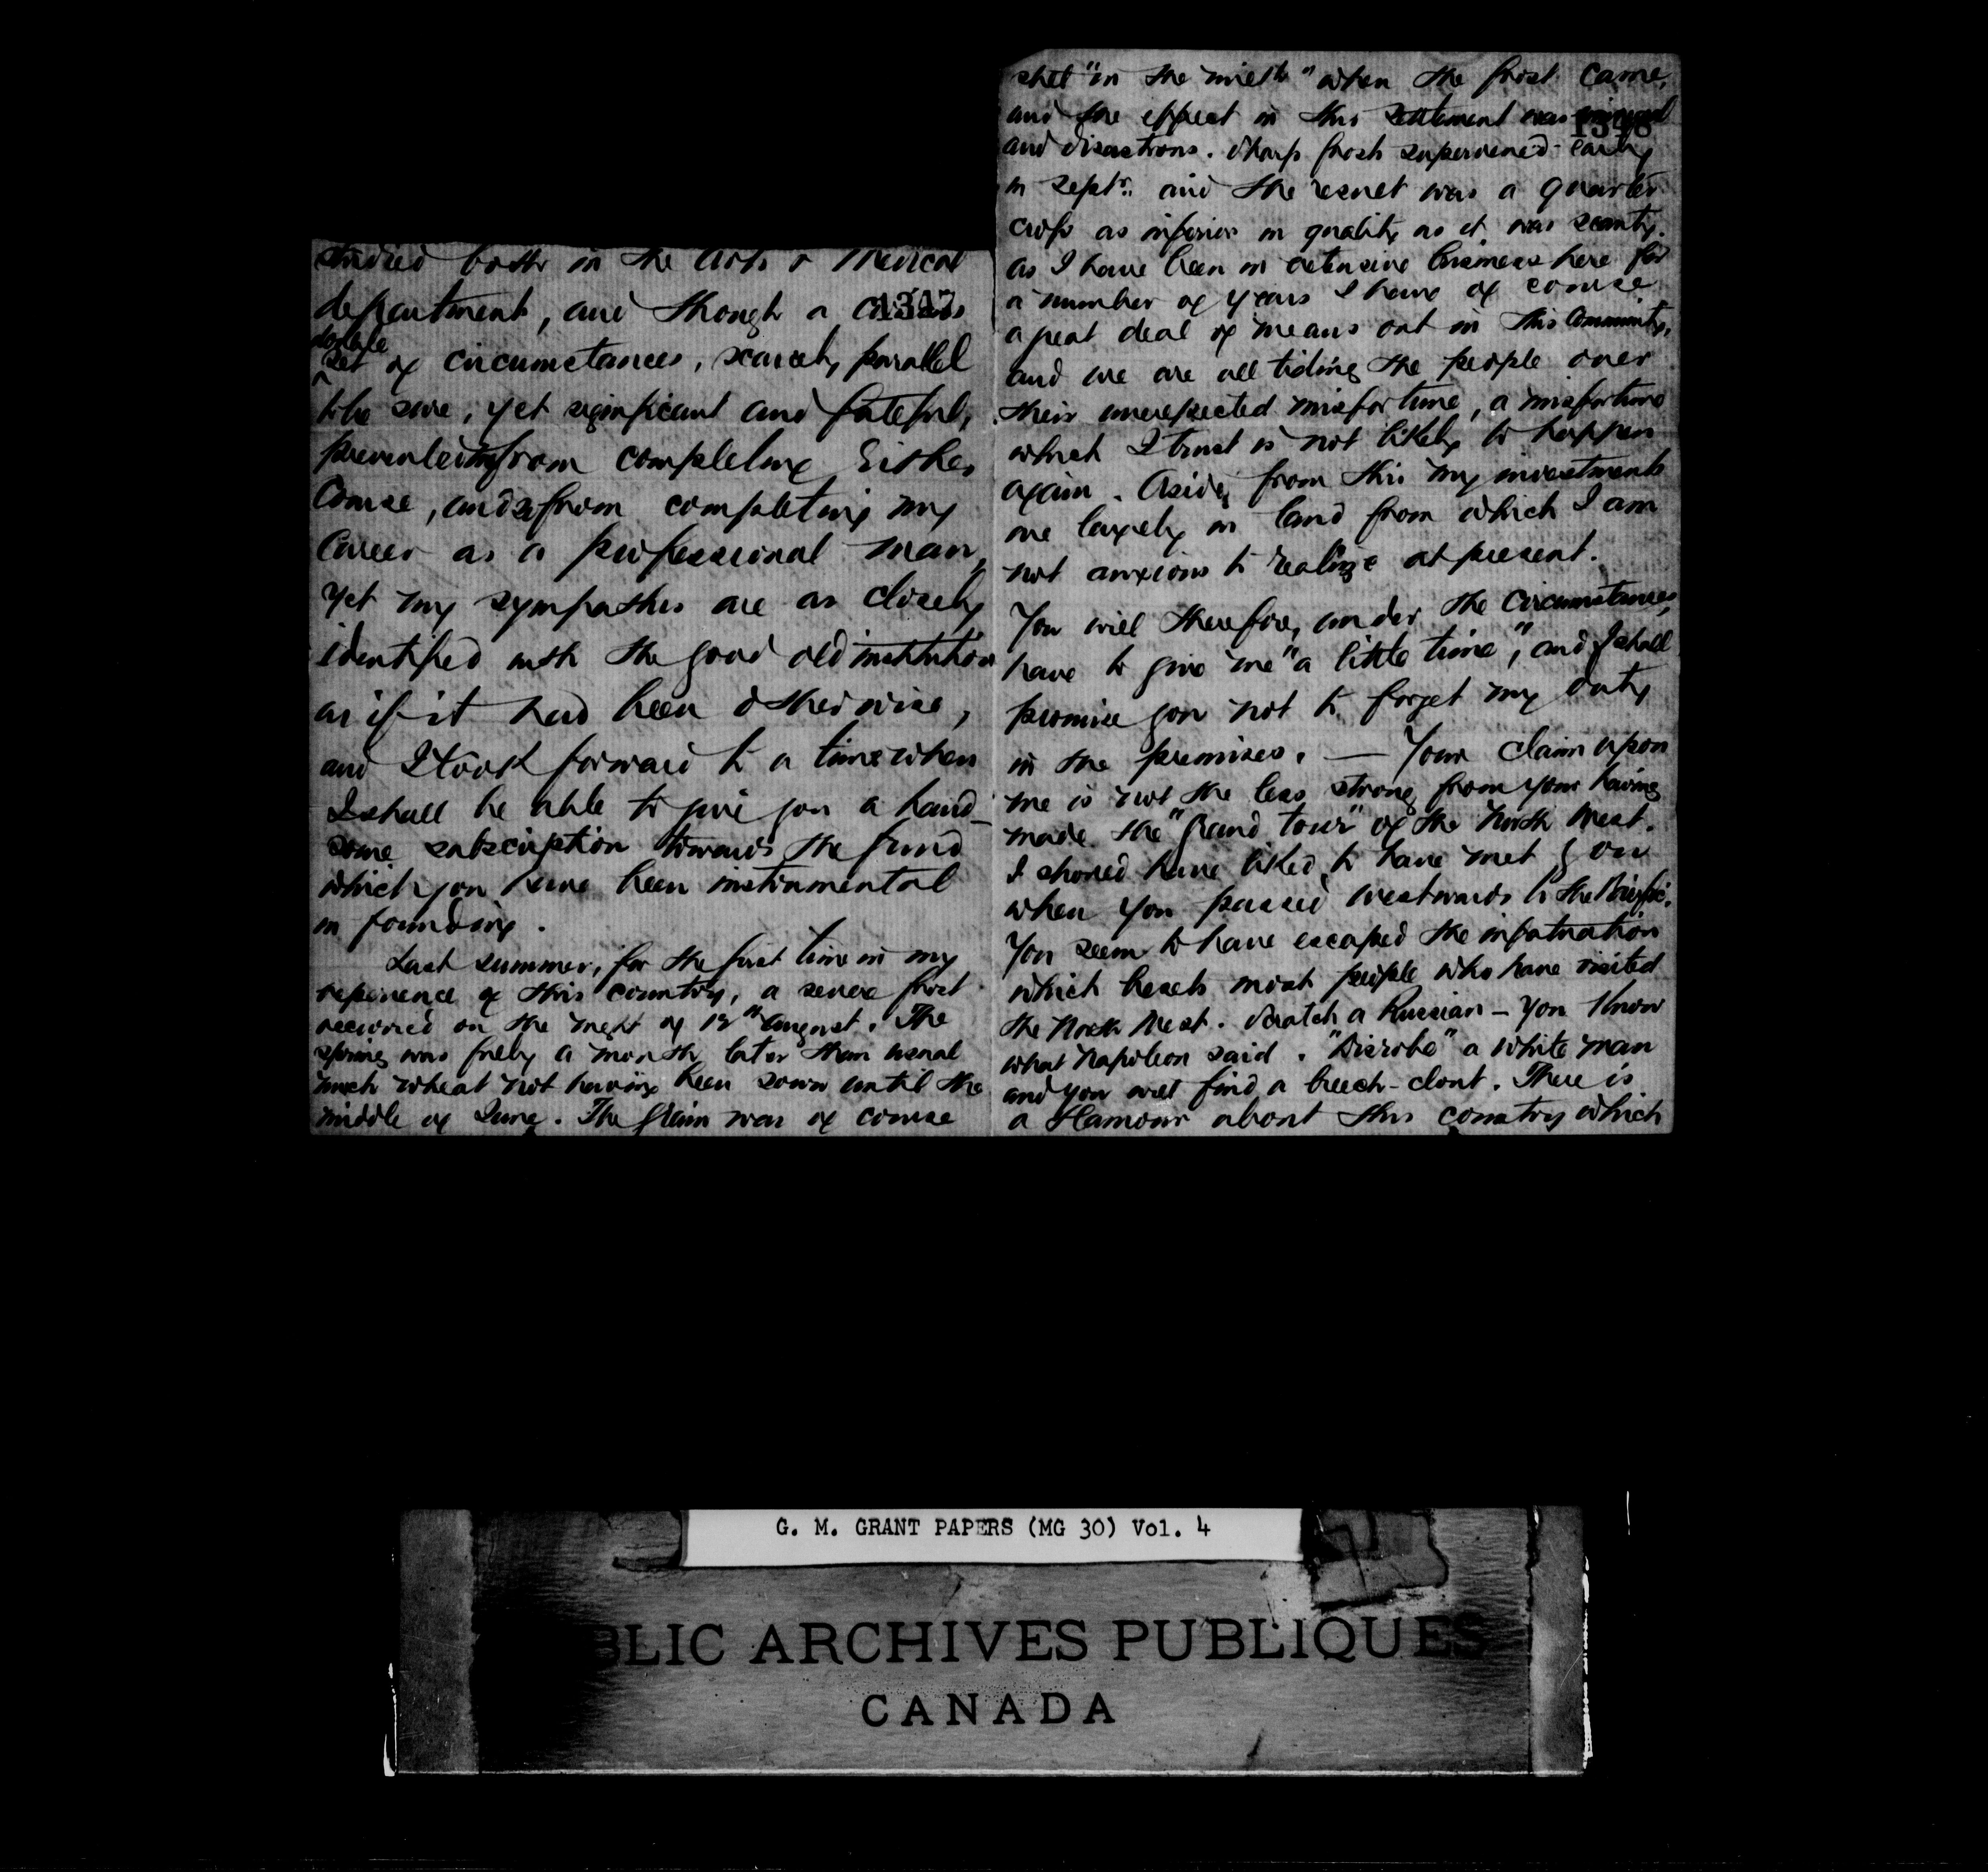 studied both in the Arts & Medical
1347
department, and though a curious
double
set of circumstances, scarcely parallel
to be sure, yet significant and fateful,
prevented me from completing Either
Course, and so from completing my
Career as a professional man,
yet my sympathies are as closely
identified with the good old institution
as if it had been otherwise,
and I look forward to a time when
I shall be able to give you a hand-
some subscription towards the fund
which you have been instrumental
in founding.
Last summer, for the first time in my
experience of this country, a severe frost
occurred on the night of August. The
spring was fully a month later than usual
much wheat not having been sown until the
middle of June. The grain was of course
1348
still "in the milk" when the frost came,
and the effect in this settlement was
and disastrous. Sharp frosts supervened early
in Septr. and the result was a quarter
crop as inferior in quality as it was scanty.
as I have been in extensive business here for
a number of years I have of course
a great deal of means out in this Community,
and we are all tiding the people over
their unexpected misfortune, a misfortune
which I trust is not likely to happen
again. Aside, from this my investments
are largely in land from which I am
not anxious to realize at present.
You will therefore, under the circumstances,
have to give me "a little time", and I shall
promise you not to forget my duty
in the premises. — Your claim upon
me is not the less strong from your having
made the "Grand tour" of the North West.
I should have liked to have met you
when you passed westwards to the Pacific.
You seem to have escaped the infatuation
which besets most people who have visited
the North West. Scratch a Russian — you know
what Napoleon said. "Disrobe" a white man
and you will find a breech-clout. There is
a Glamour about this country which
G. M. GRANT PAPERS (MG 30) Vol. 4
BLIC ARCHIVES PUBLIQUES
CANADA